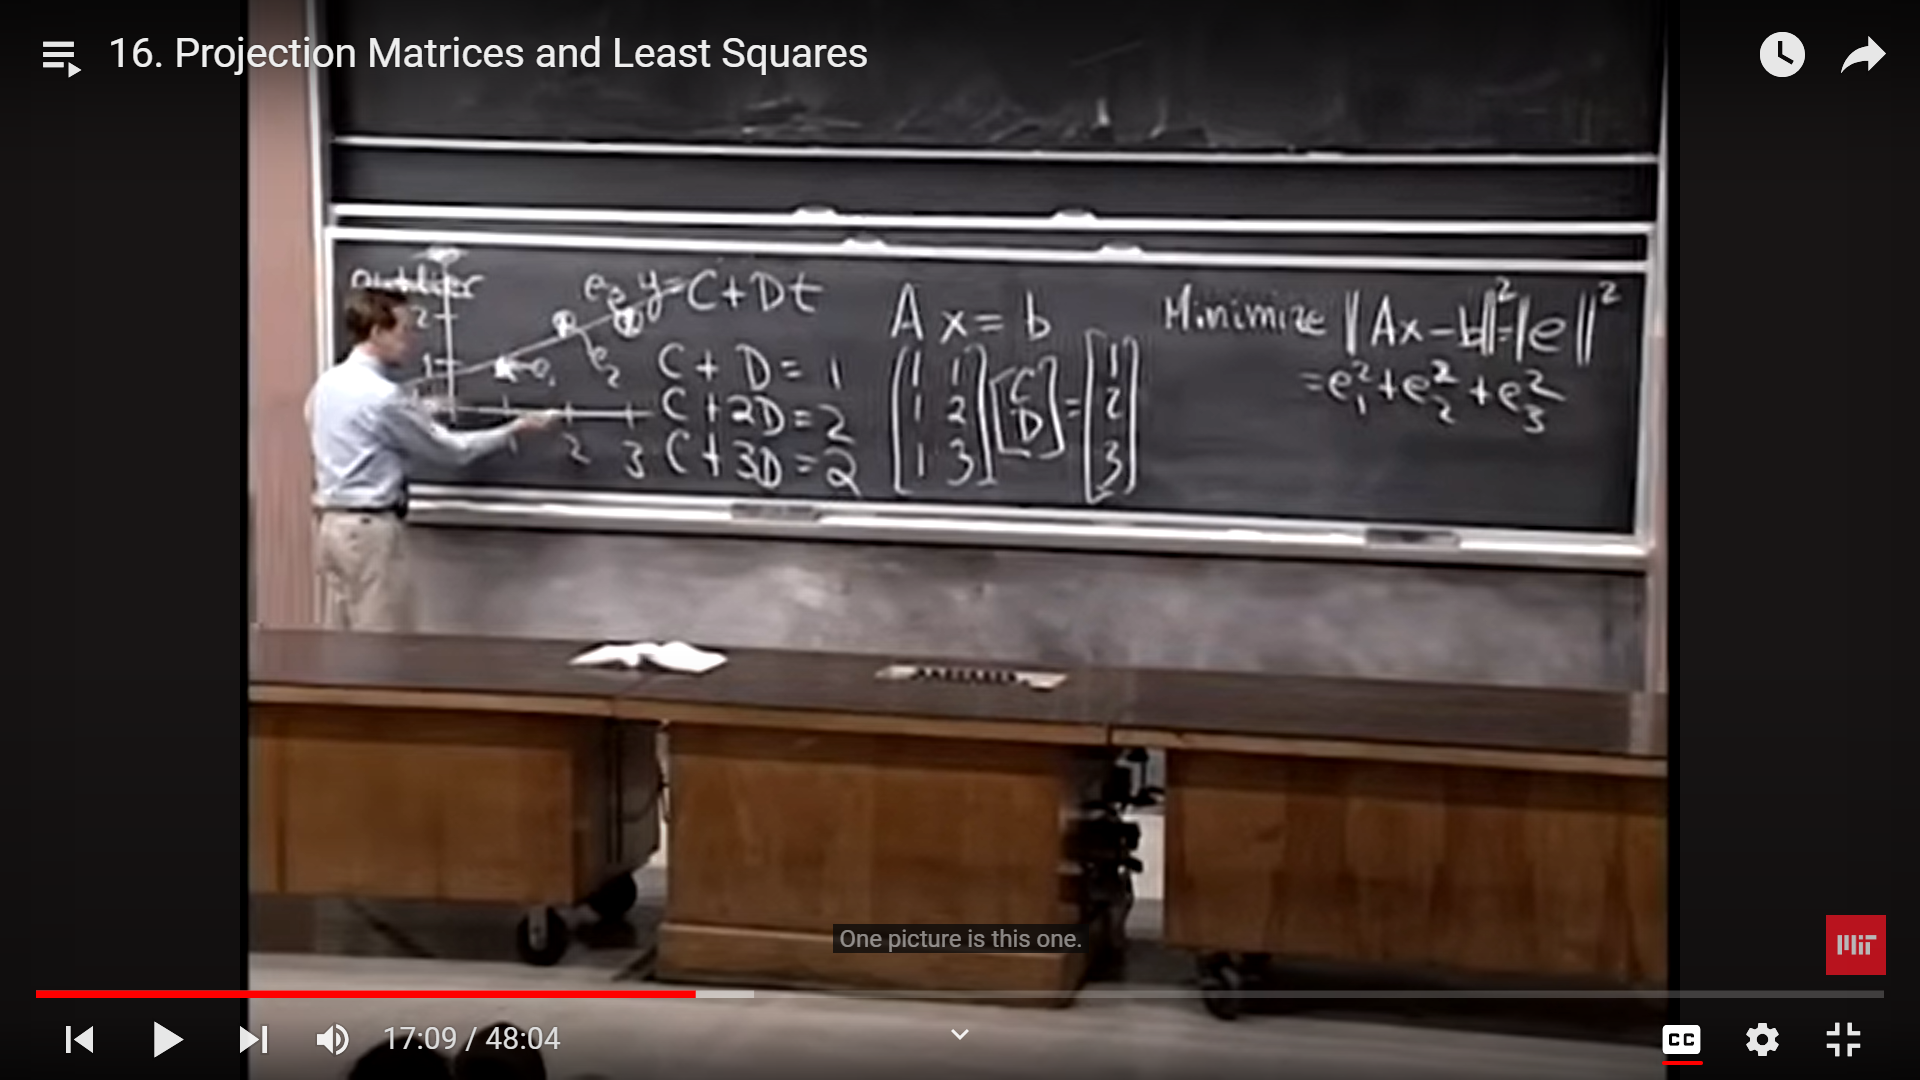 16. Projection Matrices and Least Squares
outlier
2
1
e₁
e₂
e₃
1 2 3
y=C+Dt
C + D = 1
C + 2D = 2
C + 3D = 2
A x = b
[1 1] [C] = [1]
[1 2] [D] [2]
[1 3] [3]
Minimize ||Ax-b||²=||e||²
=e₁²+e₂²+e₃²
One picture is this one.
MIT
17:09 / 48:04
CC